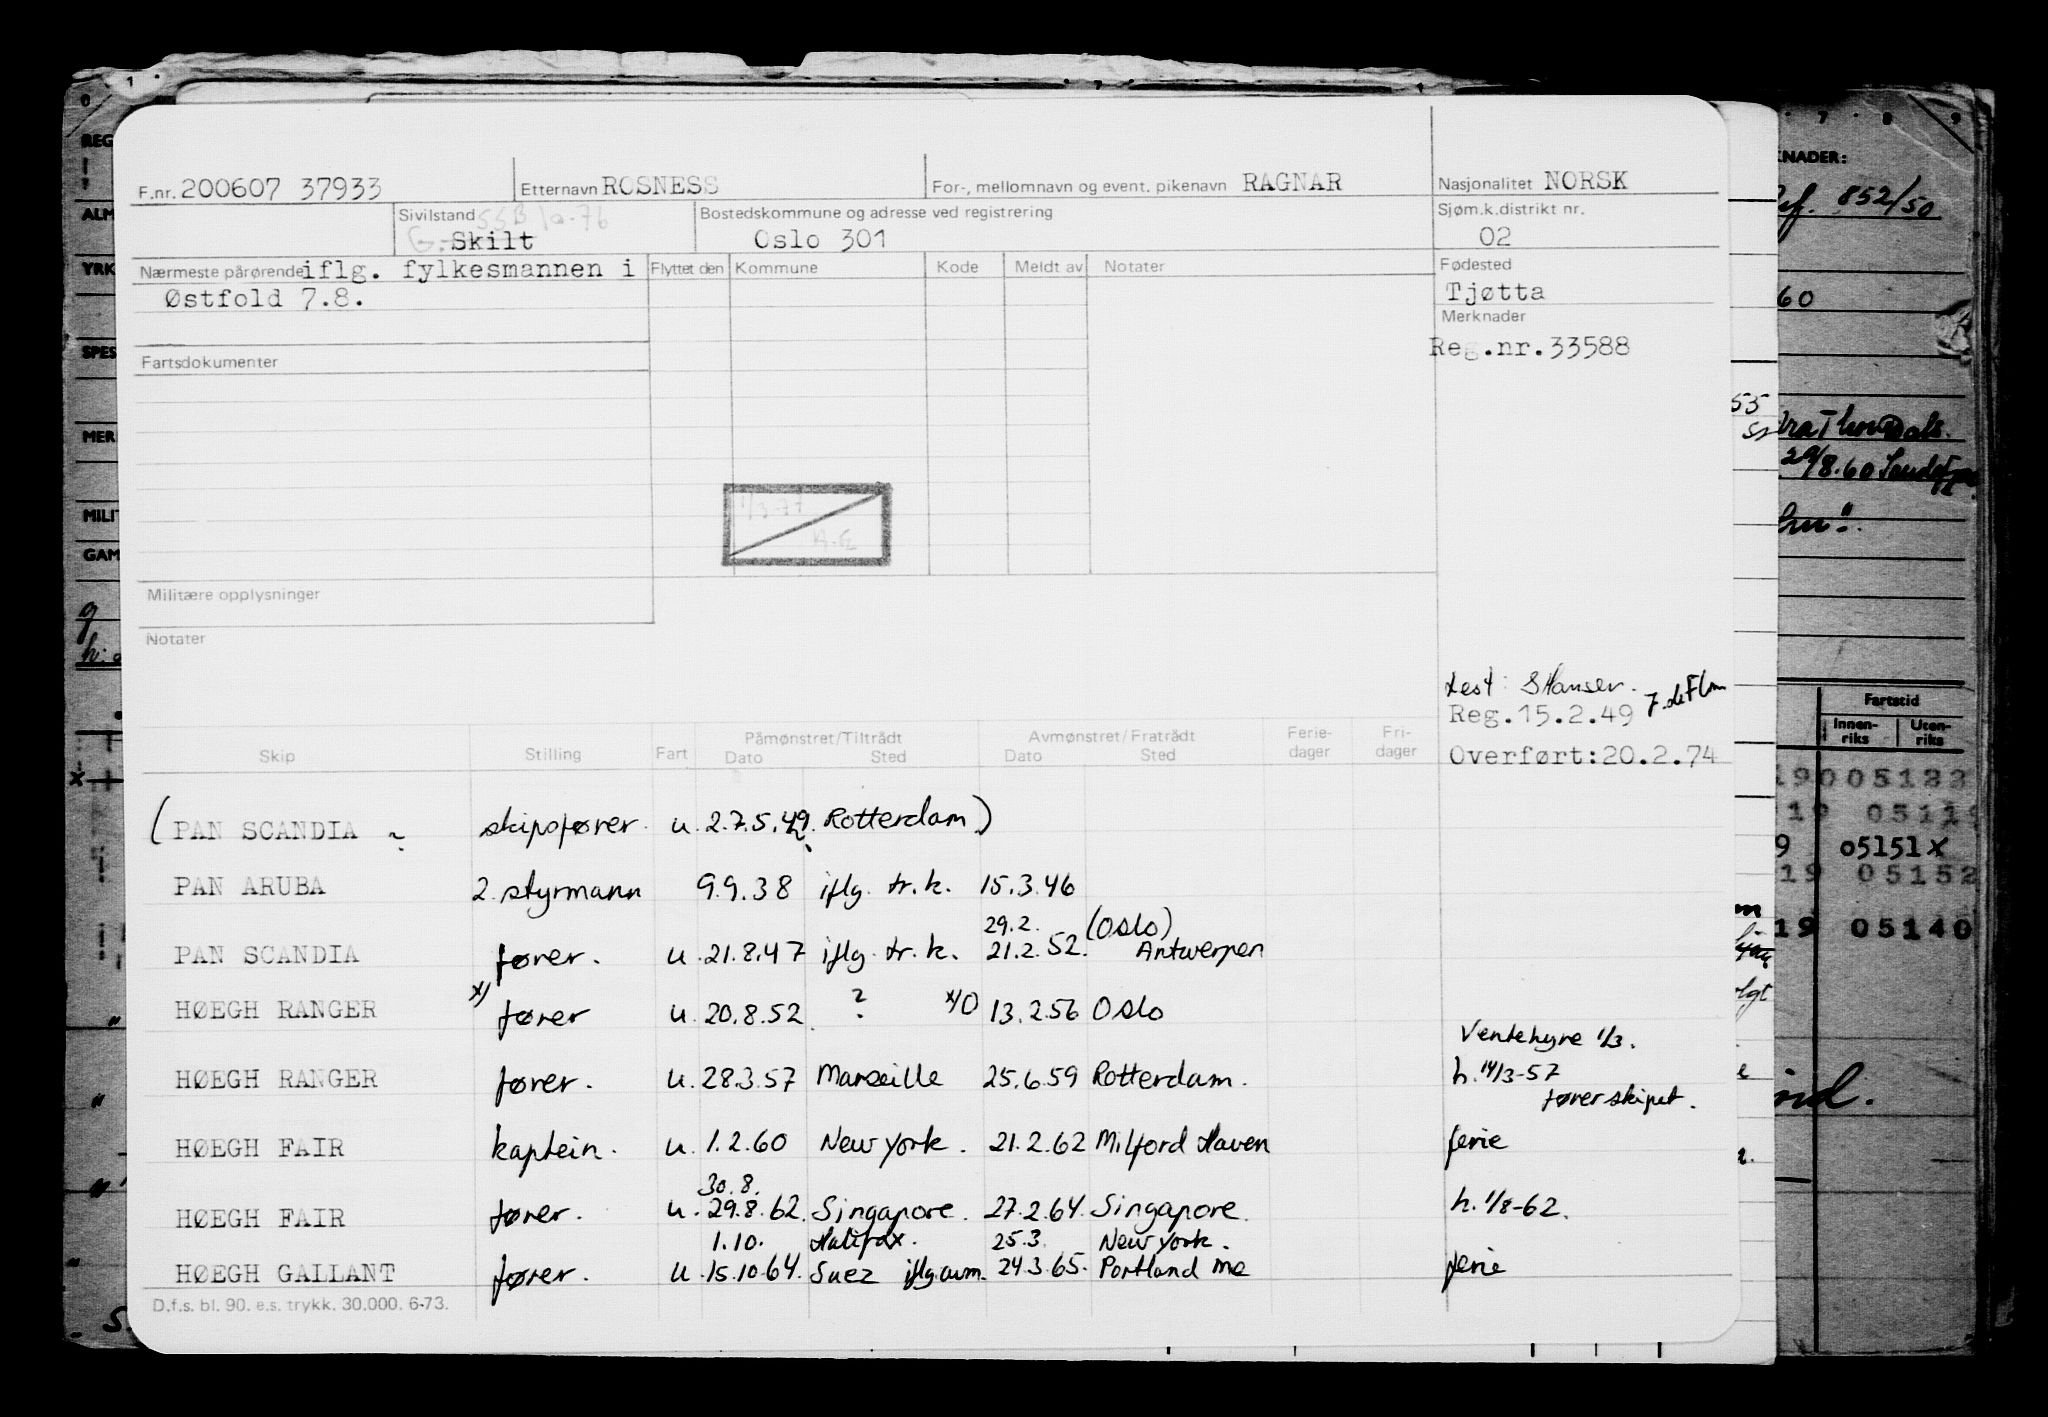 F.nr. 200607 37933 Etternavn ROSNESS For-, mellomnavn og event. pikenavn RAGNAR Nasjonalitet NORSK
Sivilstand Skilt Bostedskommune og adresse ved registrering Oslo 301 Sjøm.k.distrikt nr. 02
Nærmeste pårørende iflg. fylkesmannen i
Østfold 7.8.
Flyttet den Kommune Kode Meldt av Notater
Fødested
Tjøtta
Merknader
Reg.nr. 33588
Fartsdokumenter
1/3-77
Militære opplysninger
Notater
test: S Hansen.
Reg. 15.2.49
Overført: 20.2.74
Skip Stilling Fart Påmønstret/Tiltrådt Dato Sted Avmønstret/Fratrådt Dato Sted Ferie-dager Fri-dager
(PAN SCANDIA skipsfører. u. 2.7.5.49. Rotterdam)
PAN ARUBA 2. styrmann 9.9.38 iflg. tr.k. 15.3.46
29.2. (Oslo)
PAN SCANDIA fører. u. 21.8.47 iflg. tr.k. 21.2.52. Antwerpen
HØEGH RANGER x) fører u. 20.8.52. ? x)0 13.2.56 Oslo
Ventehyre 1/3.
HØEGH RANGER fører. u. 28.3.57 Marseille 25.6.59 Rotterdam. h. 14/3-57
fører skipet.
HØEGH FAIR kaptein. u. 1.2.60 New York. 21.2.62 Milford Haven ferie
30.8.
HØEGH FAIR fører. u. 29.8.62. Singapore. 27.2.64. Singapore. h. 1/8-62.
1.10. Halifax. 25.3. New York.
HØEGH GALLANT fører. u. 15.10.64. Suez iflg.avm. 24.3.65. Portland Me ferie
D.f.s. bl. 90. e.s. trykk. 30.000. 6-73.
REG
ALM
YRK
SPES
MER
MILIT
GAM
KNADER:
852/50
60
29/8.60
Fartstid
Innen-riks Uten-riks
19005122
19 05119
9 05151x
19 05152
19 05140